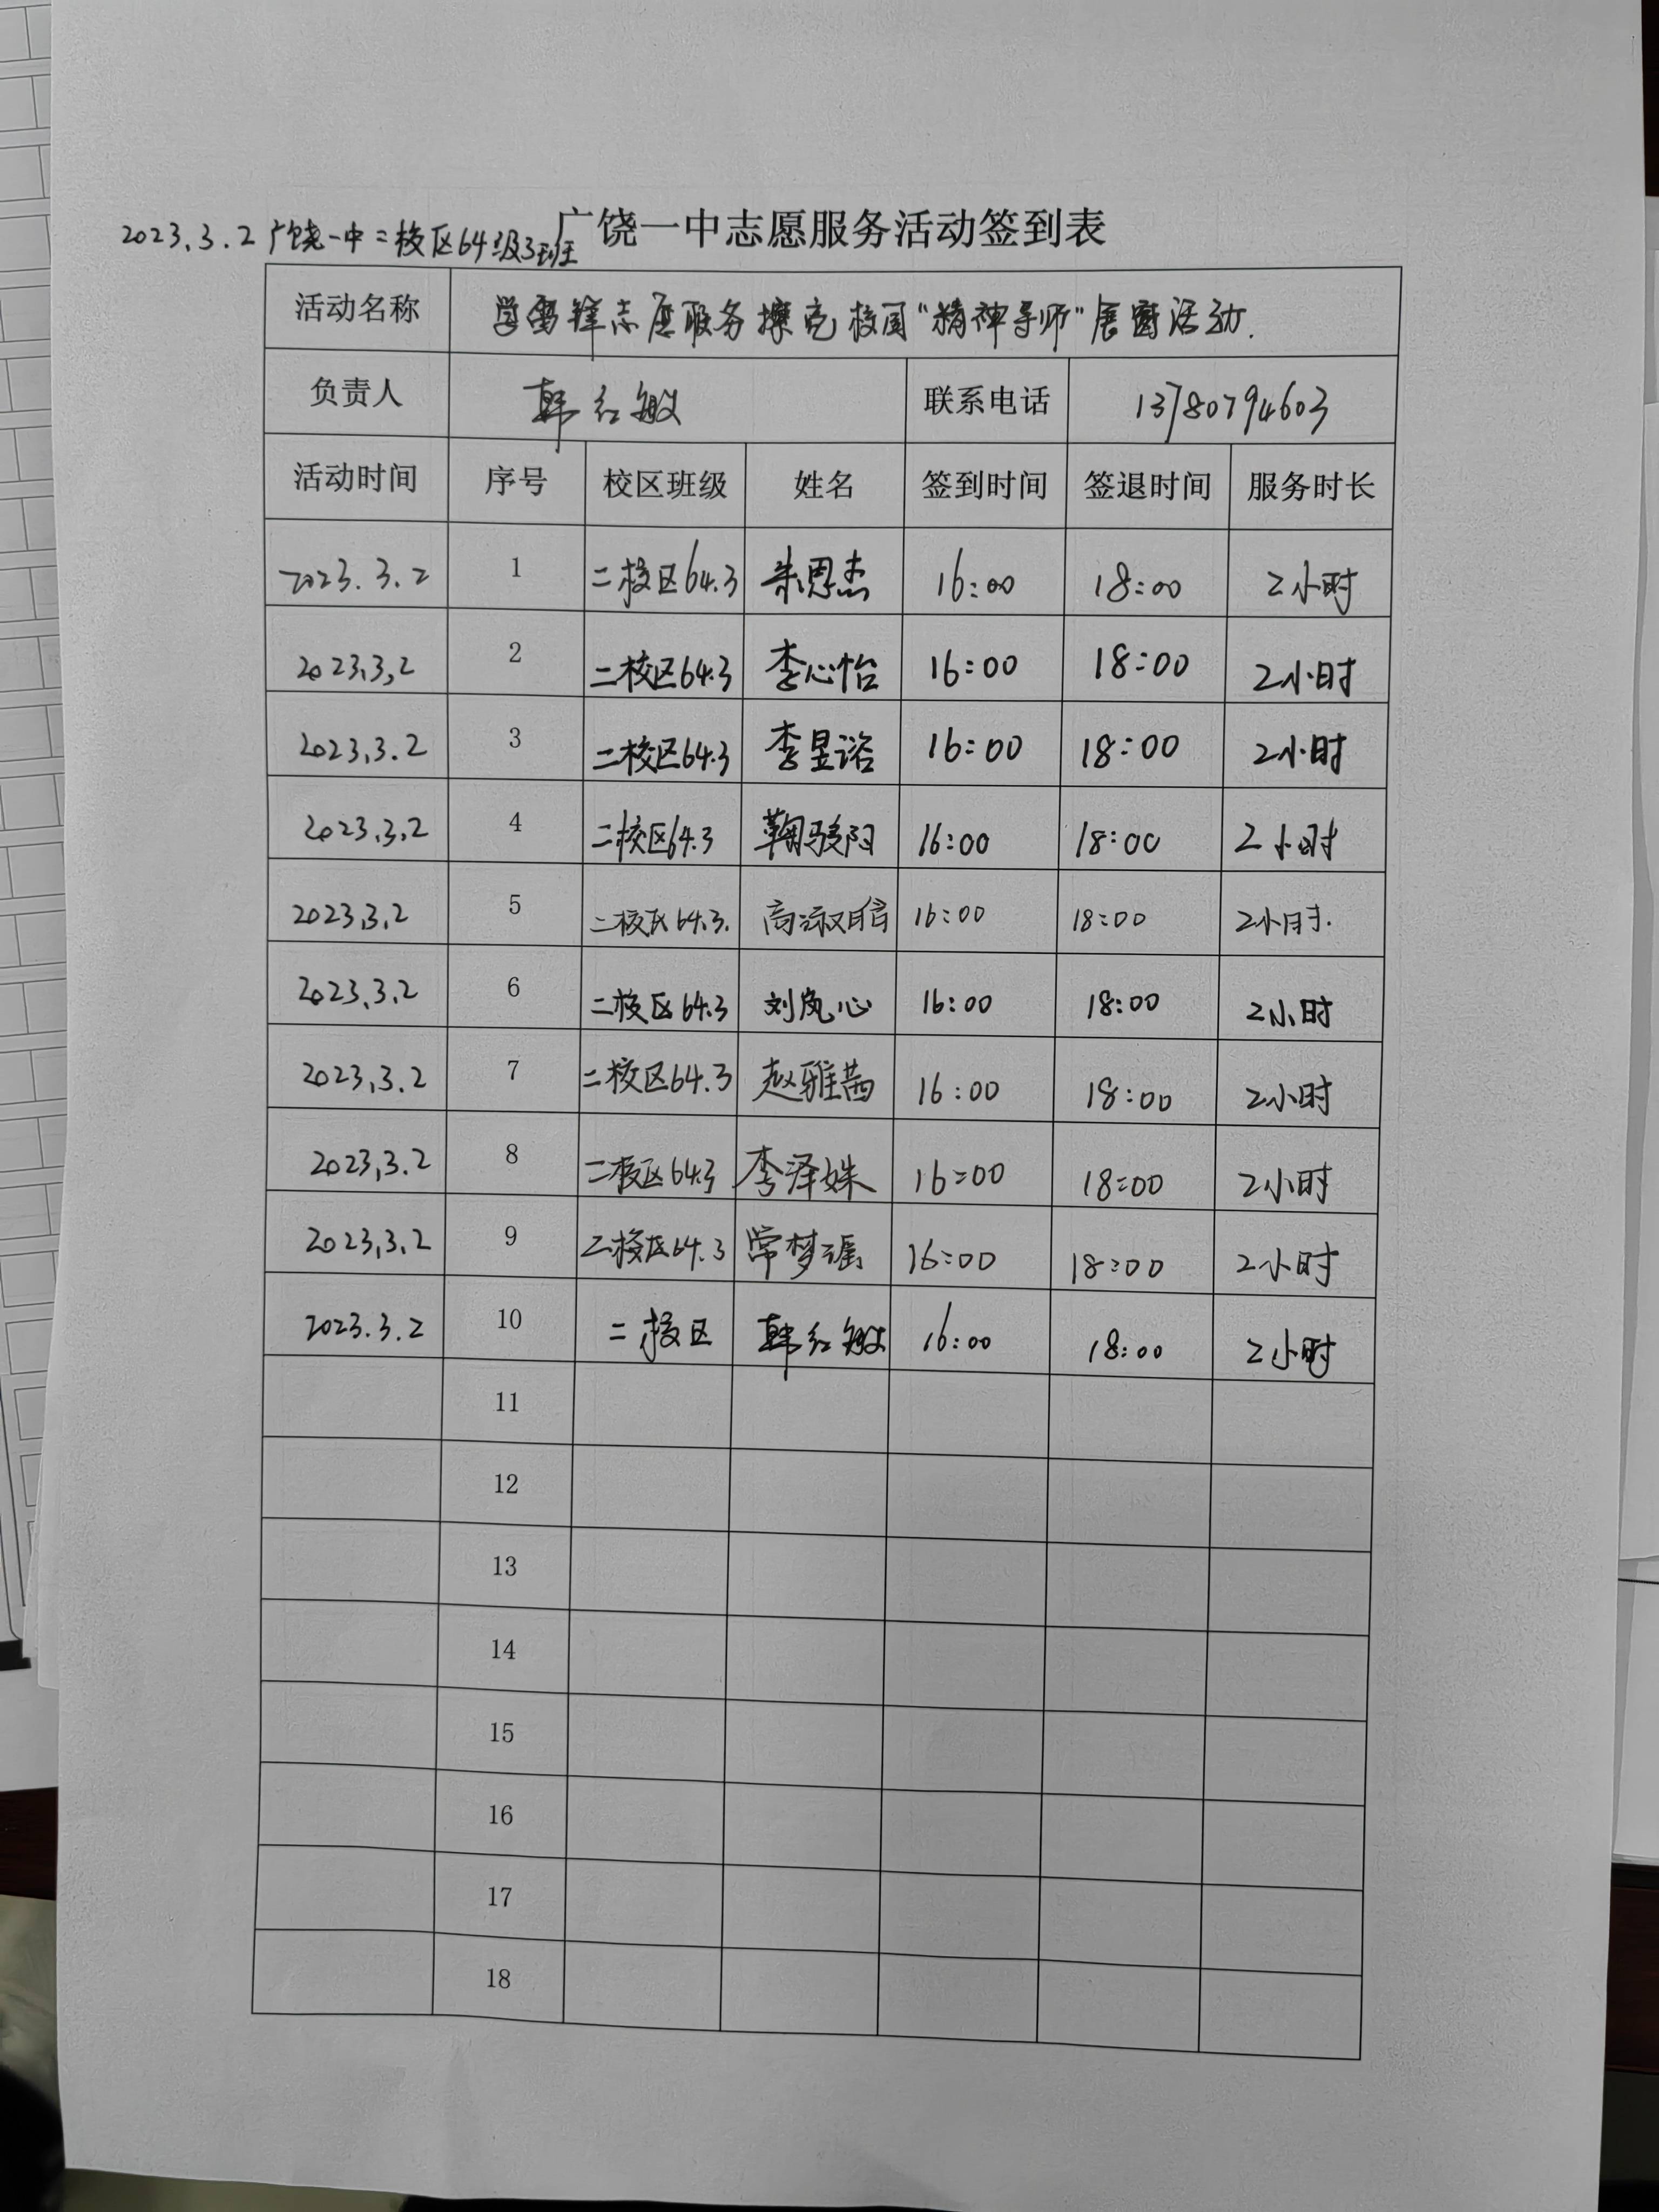 2023.3.2 广饶一中二校区64级3班
广饶一中志愿服务活动签到表
活动名称 学雷锋志愿服务擦亮校园“精神导师”展窗活动.
负责人 韩红敏 联系电话 13780794603
活动时间 序号 校区班级 姓名 签到时间 签退时间 服务时长
2023.3.2 1 二校区64.3 朱思杰 16:00 18:00 2小时
2023.3.2 2 二校区64.3 李心怡 16:00 18:00 2小时
2023.3.2 3 二校区64.3 李昱谘 16:00 18:00 2小时
2023.3.2 4 二校区64.3 鞠骏阳 16:00 18:00 2小时
2023.3.2 5 二校区64.3. 16:00 18:00 2小时.
2023.3.2 6 二校区64.3 刘岚心 16:00 18:00 2小时
2023.3.2 7 二校区64.3 赵雅茜 16:00 18:00 2小时
2023.3.2 8 二校区64.3 李泽姝 16:00 18:00 2小时
2023.3.2 9 二校区64.3 常梦瑶 16:00 18:00 2小时
2023.3.2 10 二校区 韩红敏 16:00 18:00 2小时
11
12
13
14
15
16
17
18